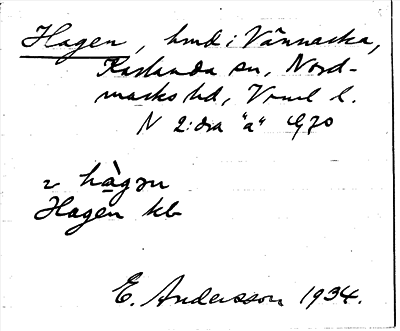 Hagen, hmd i Vännacka,
Karlanda sn, Nord-
marks hd, Vrml l.
N 2:dra "a" 1970
2 hàgən
Hagen kb
E. Andersson 1934.